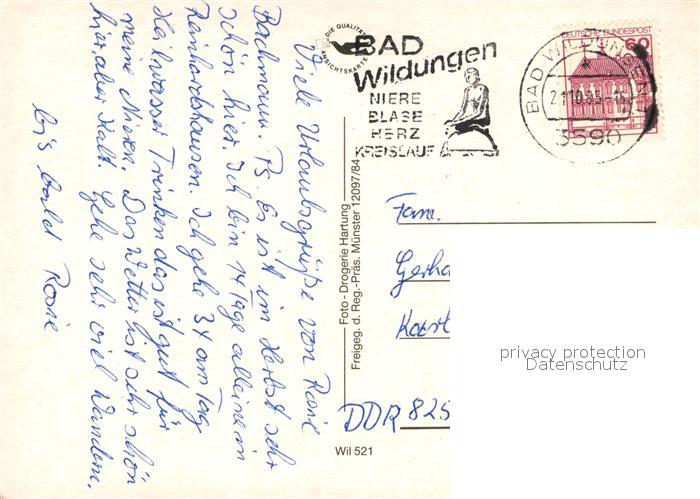 Viele Urlaubsgrüße von Rosie
Bachmann. Ps. Es ist im Herbst sehr
schön hier. Ich bin 14 Tage alleine in
Reinhardshausen. Ich gehe 3x am Tag
Heilwasser Trinken das ist gut für
meine Nieren. Das Wetter ist sehr schön
hier aber kalt. Gehe sehr viel Wandern.
bis bald Rosie
DIE QUALITÄTS
ANSICHTSKARTE
BAD
Wildungen
NIERE
BLASE
HERZ
KREISLAUF
BAD WILDUNGEN
3590
DEUTSCHE BUNDESPOST
60
Foto - Drogerie Hartung
Freigeg. d. Reg.-Präs. Münster 12097/84
Fam.
Gerha
DDR 825
Wil 521
privacy protection
Datenschutz